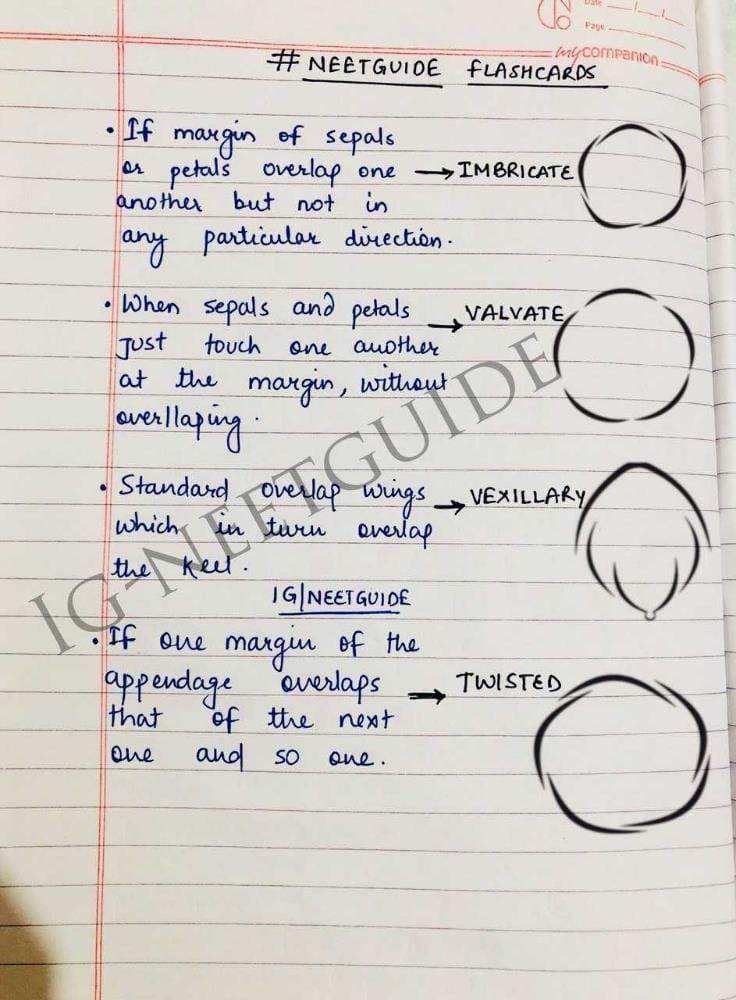 Date
Page
mycompanion
# NEETGUIDE FLASHCARDS
• If margin of sepals
or petals overlap one → IMBRICATE
another but not in
any particular direction.
• When sepals and petals → VALVATE
Just touch one another
at the margin, without
overllaping.
• Standard overlap wings → VEXILLARY
which in turn overlap
the keel.
IG|NEETGUIDE
• If one margin of the
appendage overlaps → TWISTED
that of the next
one and so one.
IG-NEETGUIDE